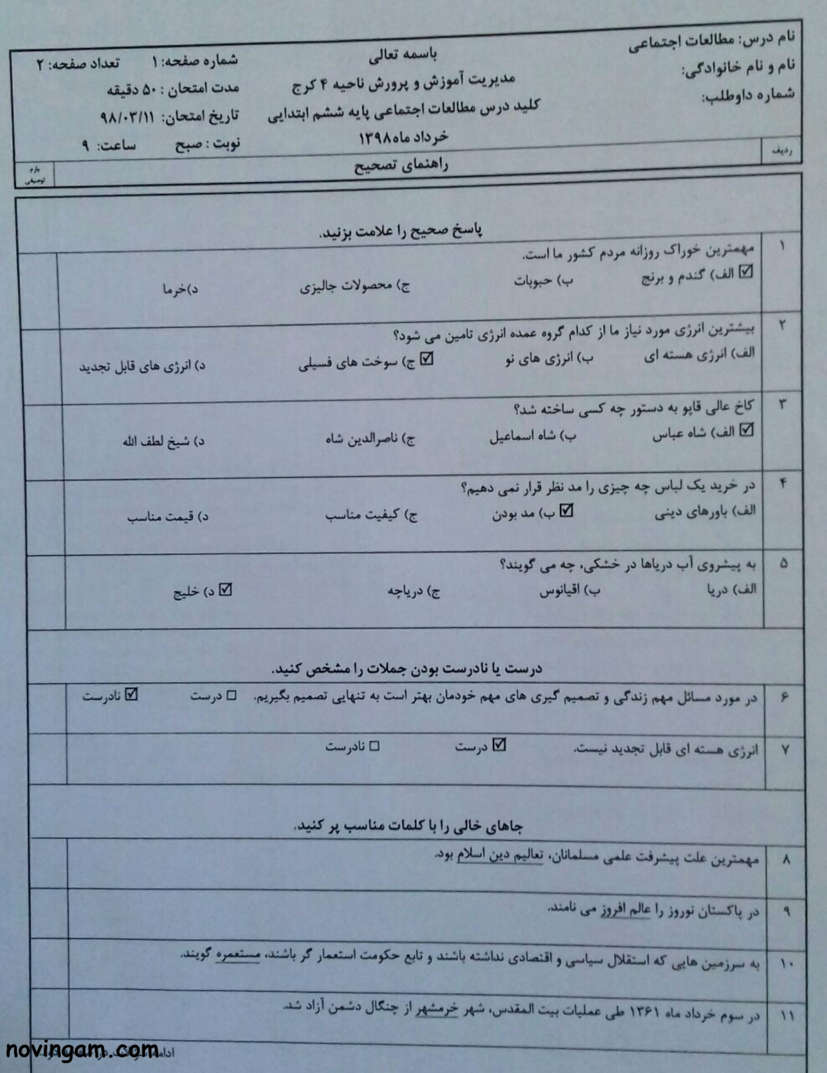 نام درس: مطالعات اجتماعی
نام و نام خانوادگی:
شماره داوطلب:
باسمه تعالی
مدیریت آموزش و پرورش ناحیه ۴ کرج
کلید درس مطالعات اجتماعی پایه ششم ابتدایی
خرداد ماه ۱۳۹۸
شماره صفحه: ۱ تعداد صفحه: ۲
مدت امتحان : ۵۰ دقیقه
تاریخ امتحان: ۹۸/۰۳/۱۱
نوبت : صبح ساعت: ۹
ردیف راهنمای تصحیح
پاسخ صحیح را علامت بزنید.
۱ مهمترین خوراک روزانه مردم کشور ما است.
☑ الف) گندم و برنج ب) حبوبات ج) محصولات جالیزی د)خرما
۲ بیشترین انرژی مورد نیاز ما از کدام گروه عمده انرژی تامین می شود؟
الف) انرژی هسته ای ب) انرژی های نو ☑ ج) سوخت های فسیلی د) انرژی های قابل تجدید
۳ کاخ عالی قاپو به دستور چه کسی ساخته شد؟
☑ الف) شاه عباس ب) شاه اسماعیل ج) ناصرالدین شاه د) شیخ لطف الله
۴ در خرید یک لباس چه چیزی را مد نظر قرار نمی دهیم؟
الف) باورهای دینی ☑ ب) مد بودن ج) کیفیت مناسب د) قیمت مناسب
۵ به پیشروی آب دریاها در خشکی، چه می گویند؟
الف) دریا ب) اقیانوس ج) دریاچه ☑ د) خلیج
درست یا نادرست بودن جملات را مشخص کنید.
۶ در مورد مسائل مهم زندگی و تصمیم گیری های مهم خودمان بهتر است به تنهایی تصمیم بگیریم. □ درست ☑ نادرست
۷ انرژی هسته ای قابل تجدید نیست. ☑ درست □ نادرست
جاهای خالی را با کلمات مناسب پر کنید.
۸ مهمترین علت پیشرفت علمی مسلمانان، تعالیم دین اسلام بود.
۹ در پاکستان نوروز را عالم افروز می نامند.
۱۰ به سرزمین هایی که استقلال سیاسی و اقتصادی نداشته باشند و تابع حکومت استعمار گر باشند، مستعمره گویند.
۱۱ در سوم خرداد ماه ۱۳۶۱ طی عملیات بیت المقدس، شهر خرمشهر از چنگال دشمن آزاد شد.
novingam.com